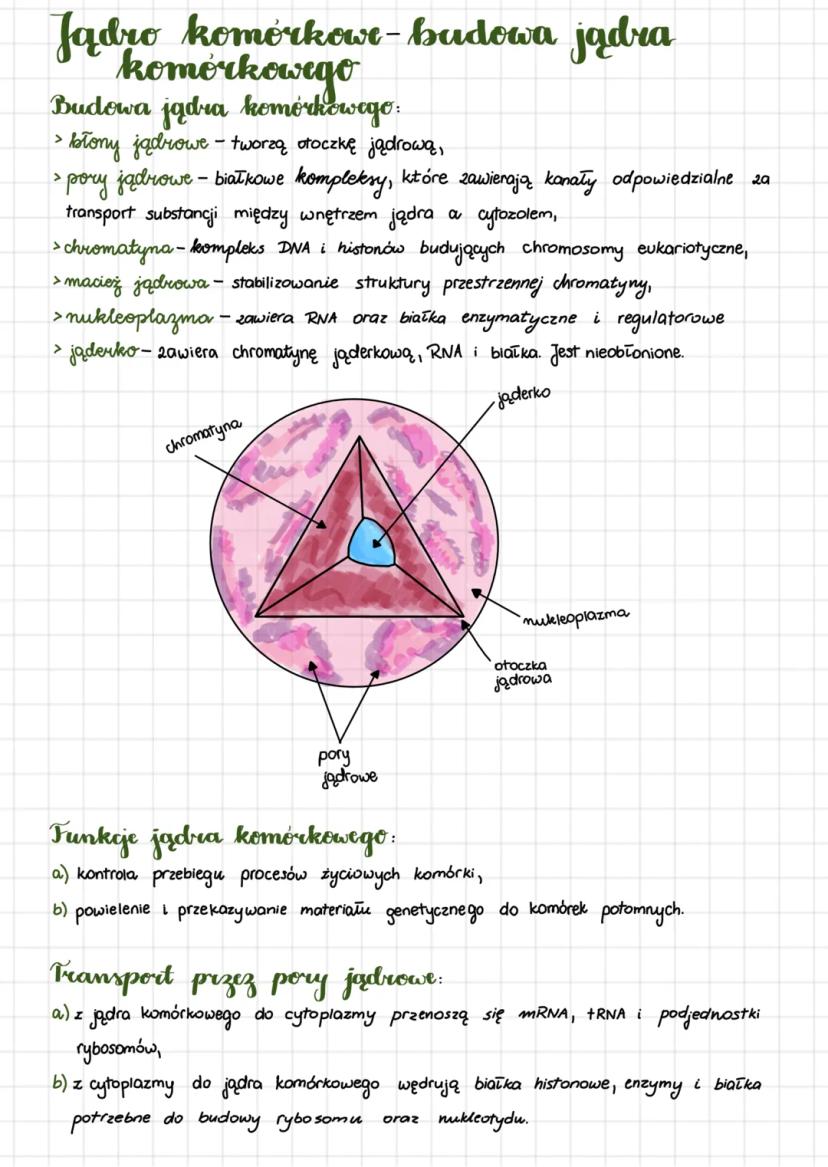 Jądro komórkowe - budowa jądra
komórkowego
Budowa jądra komórkowego:
> błony jądrowe - tworzą otoczkę jądrową,
> pory jądrowe - białkowe kompleksy, które zawierają kanały odpowiedzialne za
transport substancji między wnętrzem jądra a cytozolem,
> chromatyna - kompleks DNA i histonów budujących chromosomy eukariotyczne,
> macież jądrowa - stabilizowanie struktury przestrzennej chromatyny,
> nukleoplazma - zawiera RNA oraz białka enzymatyczne i regulatorowe
> jąderko - zawiera chromatynę jąderkową, RNA i białka. Jest nieobłonione.
jąderko
chromatyna
nukleoplazma
otoczka
jądrowa
pory
jądrowe
Funkcje jądra komórkowego:
a) kontrola przebiegu procesów życiowych komórki,
b) powielenie i przekazywanie materiału genetycznego do komórek potomnych.
Transport przez pory jądrowe:
a) z jądra komórkowego do cytoplazmy przenoszą się mRNA, tRNA i podjednostki
rybosomów,
b) z cytoplazmy do jądra komórkowego wędrują białka histonowe, enzymy i białka
potrzebne do budowy rybosomu oraz nukleotydu.